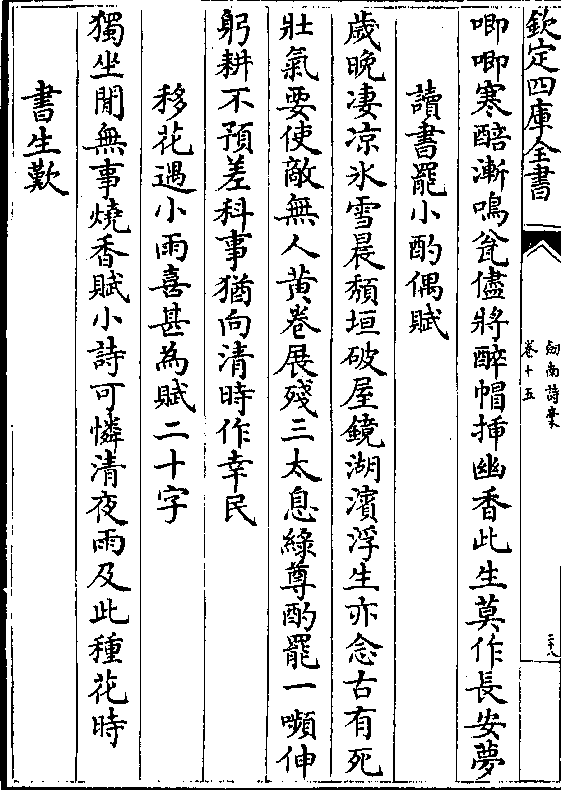 欽定四庫全書
劒南詩槀
卷十五
二十八
唧唧寒醅漸鳴瓮儘將醉帽揷幽香此生莫作長安夢
讀書罷小酌偶賦
歲晚凄凉氷雪晨頹垣破屋鏡湖濱浮生亦念古有死
壯氣要使敵無人黃卷展殘三太息綠尊酌罷一嚬伸
躬耕不預差科事猶向清時作幸民
移花遇小雨喜甚為賦二十字
獨坐閒無事燒香賦小詩可憐清夜雨及此種花時
書生歎